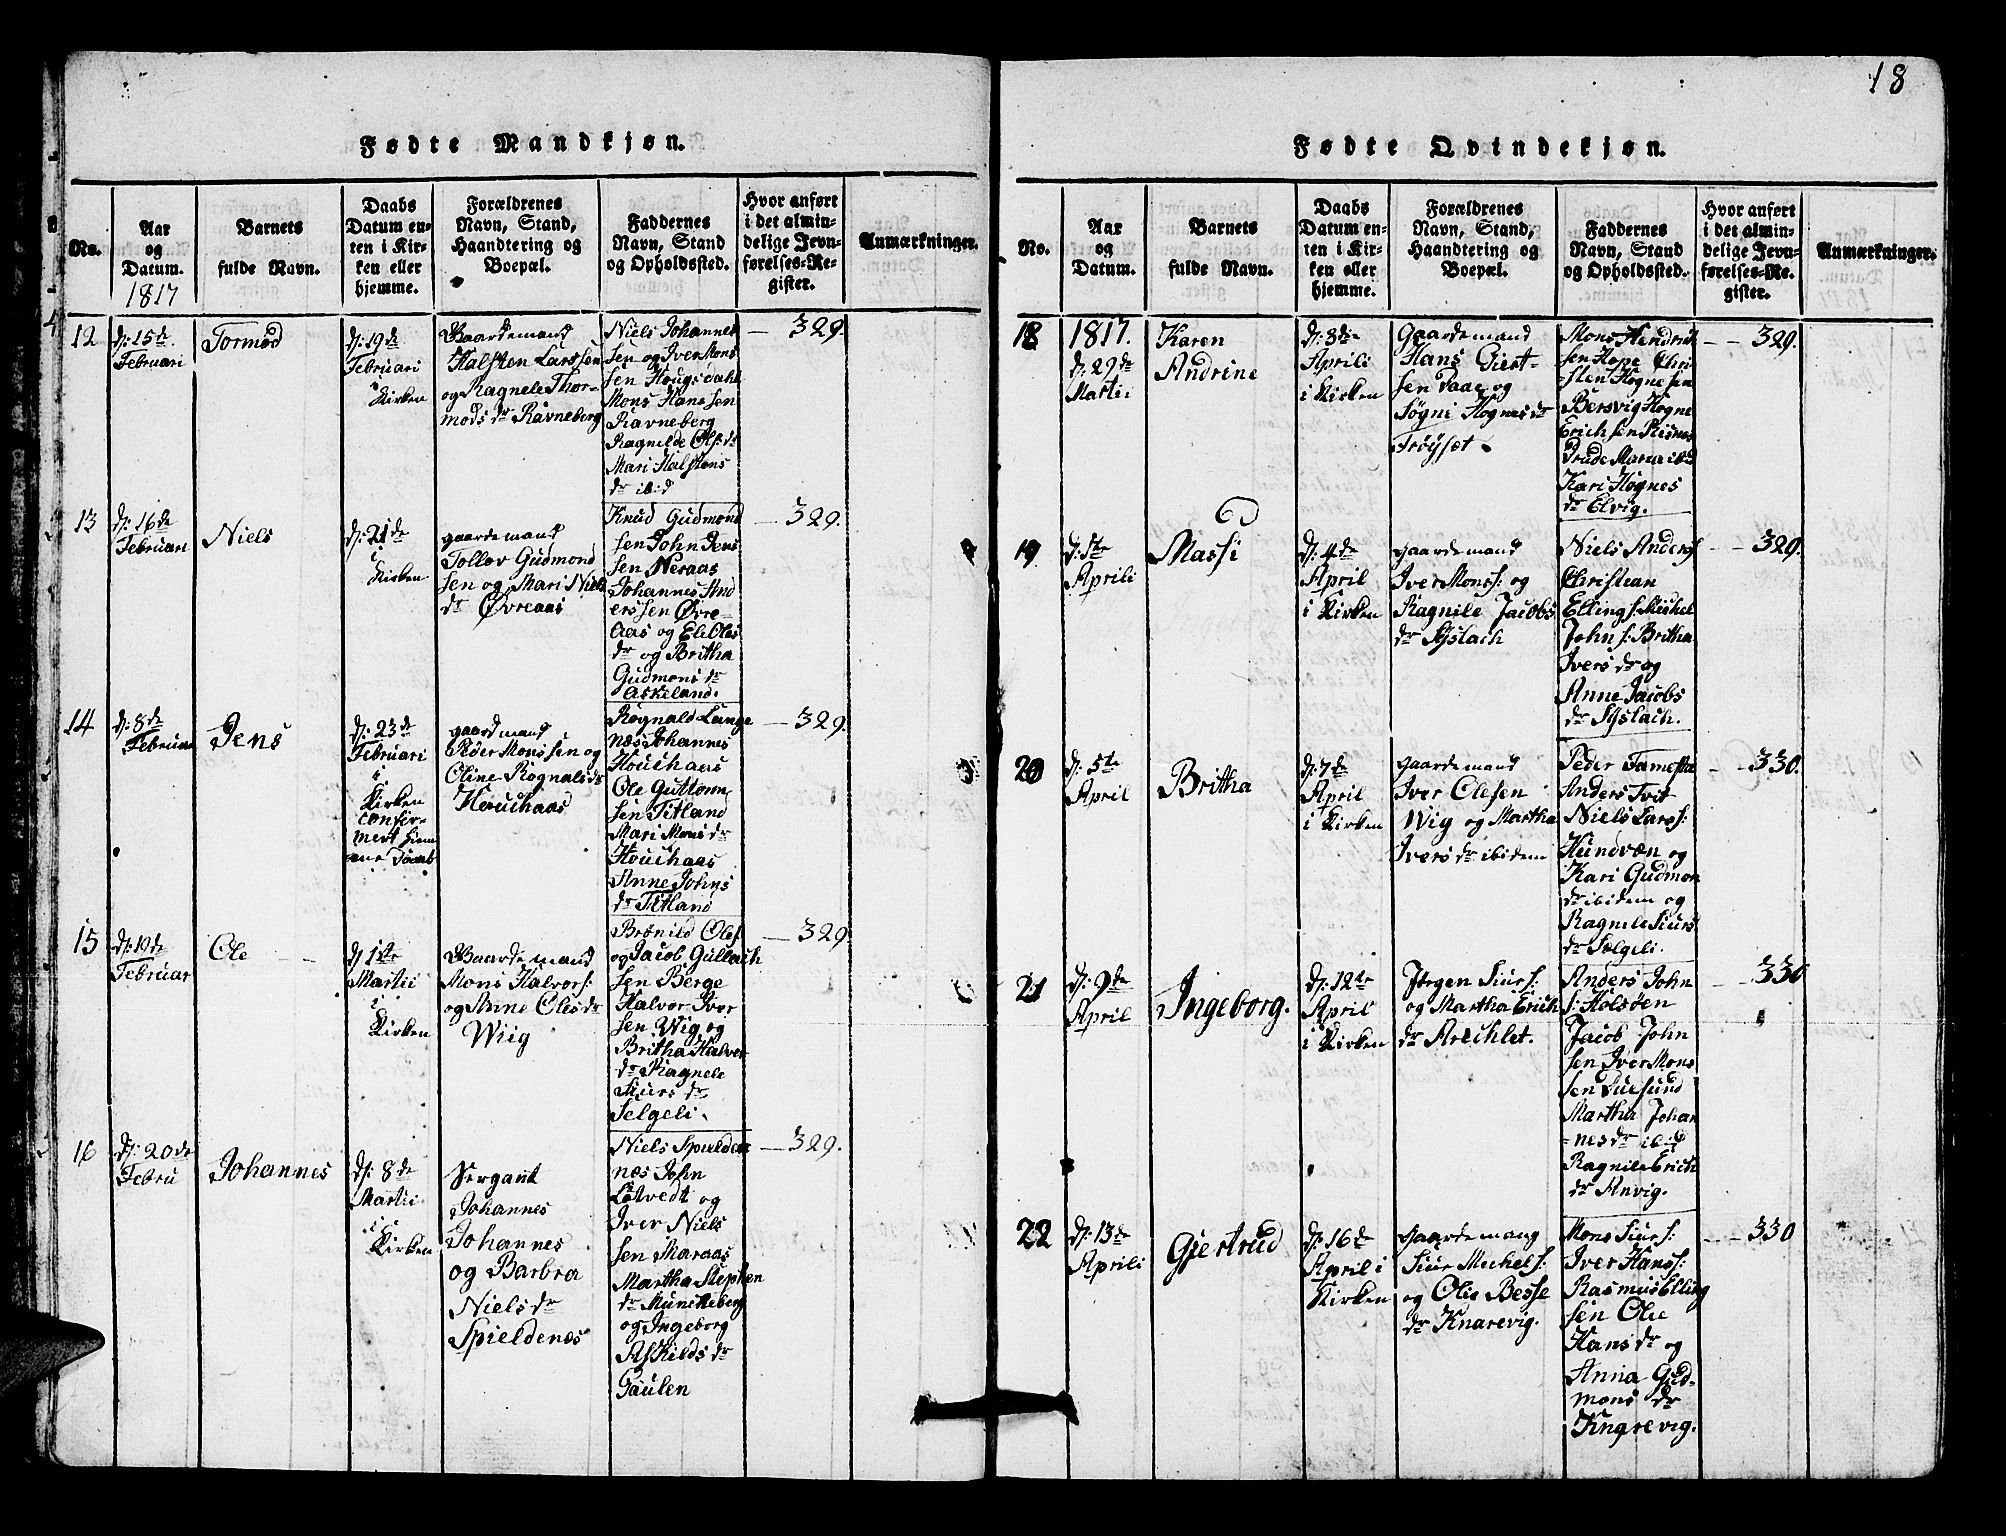 18
Fødte Mandkjøn.
No.
Aar
og
Datum.
1817
Barnets
fulde Navn.
Daabs
Datum en-
ten i Kir-
ken eller
hjemme.
Forældrenes
Navn, Stand,
Haandtering og
Boepæl.
Faddernes
Navn, Stand
og Opholdssted.
Hvor anført
i det almin-
delige Jevn-
førelses-Re-
gister.
Anmærkninger.
12
d: 15de
Februari
Tormod
d: 19de
Februari
i
Kirken
Gaardemand
Halsten Larssen
og Ragnele Thor-
mods dr Ravneberg
Niels Johannes
sen og Iver Mons
sen Hougsdahl
Mons Hanssen
Ravneberg
Ragnilde Ols: dr
Mari Halstens
dr ibid
329.
13
d: 16de
Februari
Niels
d: 21de
i
Kirken
gaardemand
Tollov Gudmond
sen og Mari Niels
dr Øvreaas
Knud Gudmond
sen John Jens
sen Neraas
Johannes And
erssen Øvre-
Aas og Eli Oles
dr og Britha
Gudmons dr
Askeland.
329.
14
d: 8de
Februar
Jens
d: 23de
Februari
i
Kirken
confir-
mert hiem
me Daab
gaardmand
Peder Monssen og
Oline Rognalsdr
Houchaas
Rognald Lange
næs Johannes
Houchaas
Ole Guttorm
sen Titland
Mari Mons dr
Houchaas
Anne Johns
dr Titland
329
15
d: 19de
Februar
Ole
d 1ste
Martii
i
Kirken
Gaardemand
Mons Halvors:
og Anne Olesdr
Wiig
Brønild Oles
og Jacob Gullach
sen Berge
Halvor Iver
sen Wig og
Britha Halvor
dr Ragnele
Siurs dr
Selgeli.
329
16
d: 20de
Febru
Johannes
d: 8de
Martii
i
Kirken
Sergant
Johannes
Johannes
og Barbra
Niels dr
Spieldenæs
Niels Spielden
næs John
Løtvedt og
Iver Niels
sen Maraas
Martha Stephen
dr Munckeberg
og Ingeborg
Askilds dr
Daulen
329.
Fødte Qvindekjøn.
No.
Aar
og
Datum.
Barnets
fulde Navn.
Daabs
Datum en-
ten i Kir-
ken eller
hjemme.
Forældrenes
Navn, Stand,
Haandtering og
Boepæl.
Faddernes
Navn, Stand
og Opholdssted.
Hvor anført
i det almin-
delige Jevn-
førelses-Re-
gister.
Anmærkninger.
18
1817.
d: 29de
Martii
Karen
Andrine
d: 3die
Aprili
i Kirken
Gaardemand
Hans Giert-
sen Daae og
Søgni Hognes dr
Frøyset
Mons Hendrik
sen Hope Chri
sten Hognesen
Bersvig Hogne
Erichsen Risnes
Drude Maria ibid
Kari Hognes
dr Elvig.
329.
19
d: 1ste
Aprili
Massi
d: 4de
April
i Kirken
gaardemand
Iver Mons: og
Ragnile Jacobs
dr Syslach
Niels Anders
Christian
Ellings: Michel
Johns: Britha
Ivers dr og
Anne Jacobs
dr Syslach.
329.
20
d: 5te
April
Britha
d: 7de
April
i Kirken
gaardemand
Iver Olesen
Wig og Martha
Ivers dr ibidem
Peder Famestad
Anders Tvit
Niels Lars:
Hundvæn og
Kari Gudmon
dr ibidem og
Ragnele Siurs
dr Selgeli.
330.
21
d: 9de
April
Ingeborg.
d: 12te
April
i Kirken
Jørgen Siurs:
og Martha Erich
dr Arechlet.
Anders John
s: Holsøen
Jacob John
sen Iver Mons
sen Duesund
Martha Johan
nes dr ibid
Ragnile Erich
dr Anvig.
330
22
d: 13de
Aprili
Gjertrud
d: 16de
April i
Kirken
gaardemang
Siur Michels:
og Olie Besse
dr Knarevig.
Mons Siurs:
Iver Hans:
Rasmus Elling
sen Olie
Hans dr og
Anna Gud-
mons dr
Knarevig.
330